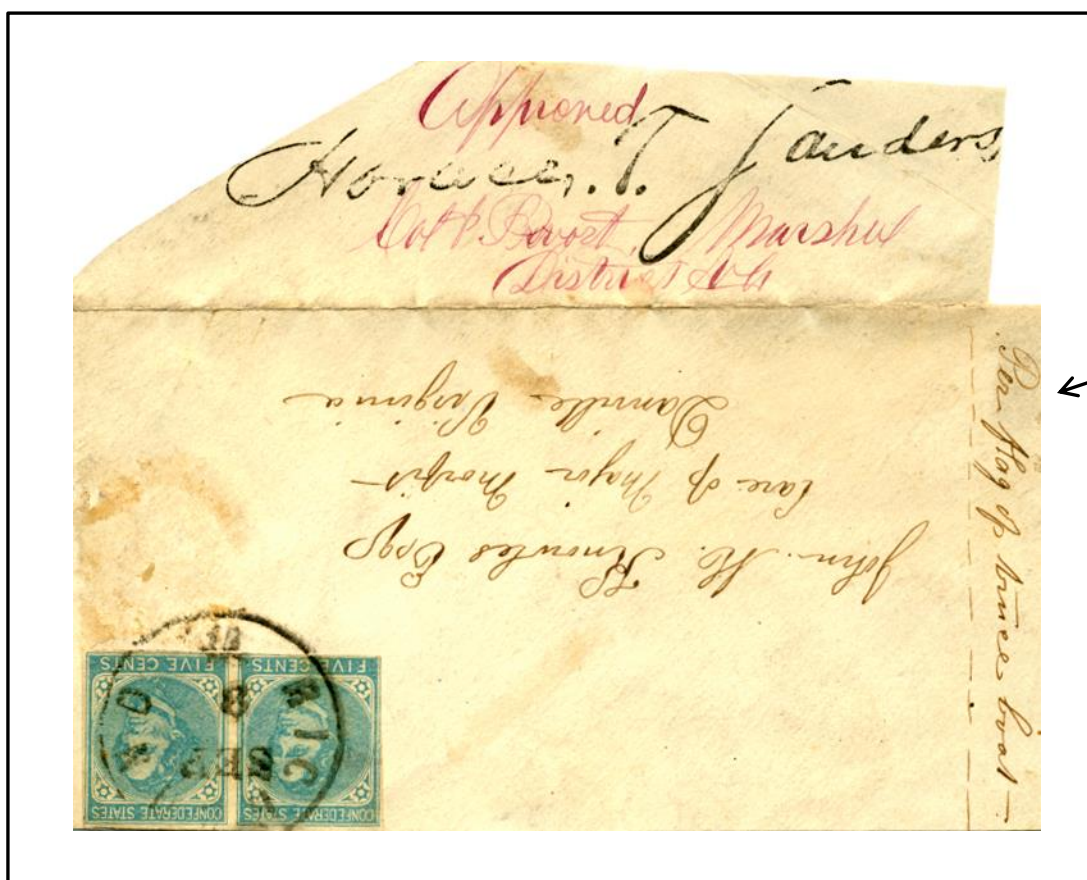 Approved
Horace. T. Sanders,
Col & Provost Marshal
District
Per flag of truce boat —
John H. Knowles Esqr
Care of Major Morfit
Danville Virginia
FIVE CENTS FIVE CENTS
CONFEDERATE STATES CONFEDERATE STATES
RIC D
SEP
8